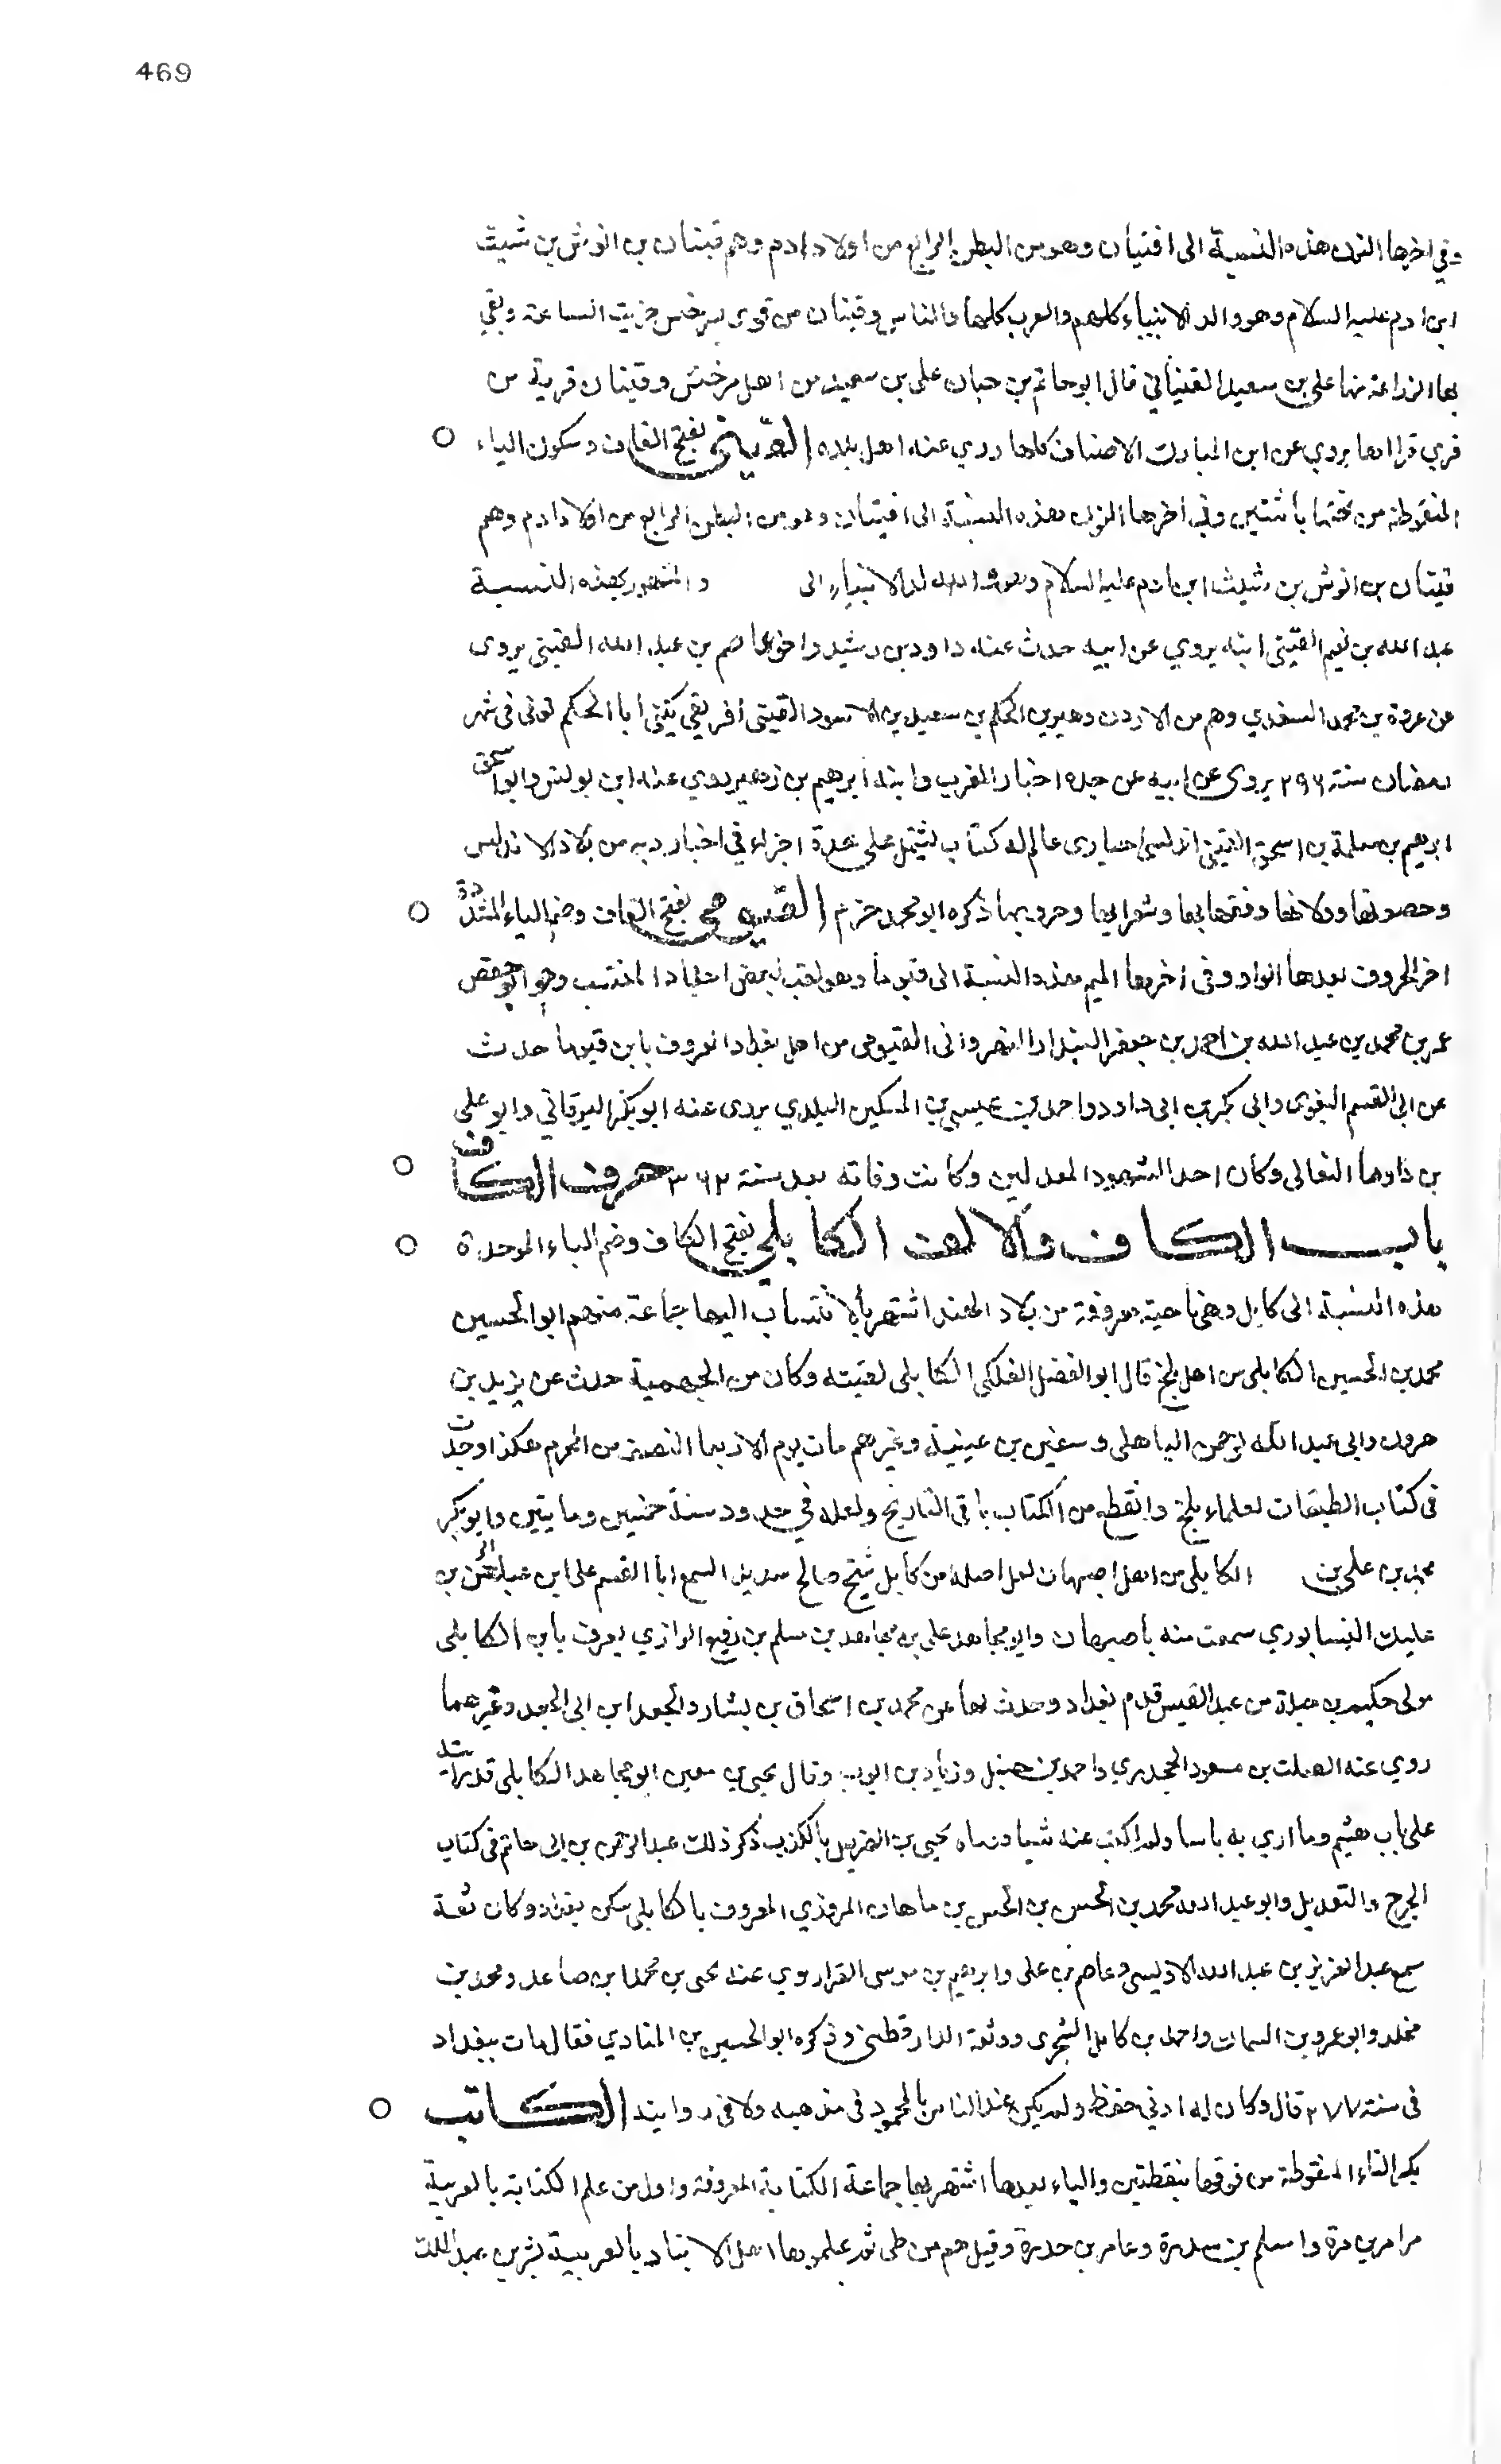 469
وفي اخرها النون هذه النسبة الى افنيان وهو من البطن الرابع من اولاد ادم وهم قينان بن انوش بن شيث
ابن ادم عليه السلام وهو والد الانبياء كلهم والعرب كلها والناس وقينان من قرى سرخس خربت الساعة وبقي
بها الزراعة منها علي بن سعيد القيناني قال ابو حاتم بن حبان علي بن سعيد من اهل سرخس وقينان قرية من
قري قراها يروي عن ابن المبارك الاصناف كلها روي عنه اهل بلده القينى بفتح القاف وسكون الياء
المنقوطة من تحتها باثنتين وفي اخرها النون هذه النسبة الى افينان وهو من البطن الرابع من اولاد ادم وهم
قينان بن انوش بن شيث ابن ادم عليه السلام وهو والد الانبياء الى والمشهور بهذه النسبة
عبد الله بن نعيم القيني ابنه يروي عن ابيه حدث عنه داود بن رشيد واخو عاصم بن عبد الله القيني يروى
عن عروة بن محمد السعدي وهم من الاردن وهيربن الحكم بن سعيد بن الاسود القيني افريقي يكنى ابا الحكم توفى فى شهر
رمضان سنة ٢٩٦ يروى عن ابيه عن جده اخبار المغرب وابنه ابرهيم بن زهير يروي عنه ابن يونس وابو اسحق
ابرهيم بن سلمة بن اسحق القيني اندلسي اخبارى عالم له كتاب يشتمل على عدة اجزاء في اخبار ريه من بلاد الاندلس
وحصونها وولاتها وفقهائها وشعرائها وحروبها ذكره ابو محمد حزم القيومى بفتح القاف وضم الياء المشددة
اخر الحروف بعدها الواو وفى اخرها الميم هذه النسبة الى قيوما وهو لقب لبعض اجداد المنتسب وهو ابو حفص
عمر بن محمد بن عبد الله بن احمد بن جعفر البندار النهرواني القيومى من اهل بغداد المعروف بابن قيوما حدث
عن ابي القسم البغوى وابى بكر بن ابى داود واحمد بن عيسى بن المسكين البلدي يروى عنه ابو بكر البرقاني وابو على
بن داوما النعالى وكان احد الشهود المعدلين وكانت وفاته بعد سنة ٣٦٢ حرف الكاف
باب الكاف والالف الكابلي بفتح الكاف وضم الباء الموحدة
هذه النسبة الى كابل وهي ناحية معروفة من بلاد الهند اشتهر بالانتساب اليها جماعة منهم ابو الحسين
محمد بن الحسين الكابلى من اهل بلخ قال ابو الفضل الفلكى الكابلى لقبته وكان من الجهمية حدث عن يزيد بن
هرون وابى عبد الله الرحمن الباهلى وسفين بن عيينة وغيرهم مات يوم الاربعا النصف من المحرم هكذا وجدت
فى كتاب الطبقات لعلماء بلخ وانقطع من الكتاب باقى التاريخ ولعله في حدود سنة خمسين ومايتين وابو بكر
محمد بن على بن الكابلى من اهل اصبهان لعل اصله من كابل شيخ صالح سديد السمع ابا القسم على ابن عبد الرحمن بن
عليك النيسابوري سمعت منه باصبهان وابو مجاهد على بن مجاهد بن مسلم بن رفيع الرازي يعرف بابن الكابلى
مولى حكيم بن جبلة من عبد القيس قدم بغداد وحدث بها عن محمد بن اسحاق بن يسار والجعد ابن ابى الجعد وغيرهما
روي عنه الصلت بن مسعود الجحدري واحمد بن حنبل وزياد بن ايوب وقال يحيى بن معين ابو مجاهد الكابلى قد رايته
على باب هشيم وما اري به باسا ولم اكتب عنه شيا ورماه يحيى بن الضريس بالكذب ذكر ذلك عبد الرحمن بن ابى حاتم فى كتاب
الجرح والتعديل وابو عبد الله محمد بن الحسن بن الحسن بن ماهان المروذي المعروف بالكابلى سكن بغداد وكان ثقة
سمع عبد العزيز بن عبد الله الاويسي وعاصم بن على وابرهيم بن موسى الفرا روي عنه يحيى بن محمد ابن صاعد ومحمد بن
مخلد وابو عمرو بن السماك واحمد بن كامل الشجرى ووثقه الدارقطني وذكره ابو الحسين بن المنادي فقال مات ببغداد
فى سنة ٢٧٧ قال وكان له ادني حفظ ولم يكن عند الناس بالمحمود فى مذهبه ولا فى روايته الكاتب
بكسر التاء المنقوطة من فوقها بنقطتين والباء بعدها اشتهر بها جماعة الكتابة المعروفة واول من علم الكتابة بالعربية
مرامر بن مرة واسلم بن سدرة وعامر بن حدرة وقيل هم من طى ثم علموها اهل الانبار بالعربية بشر بن عبد الملك